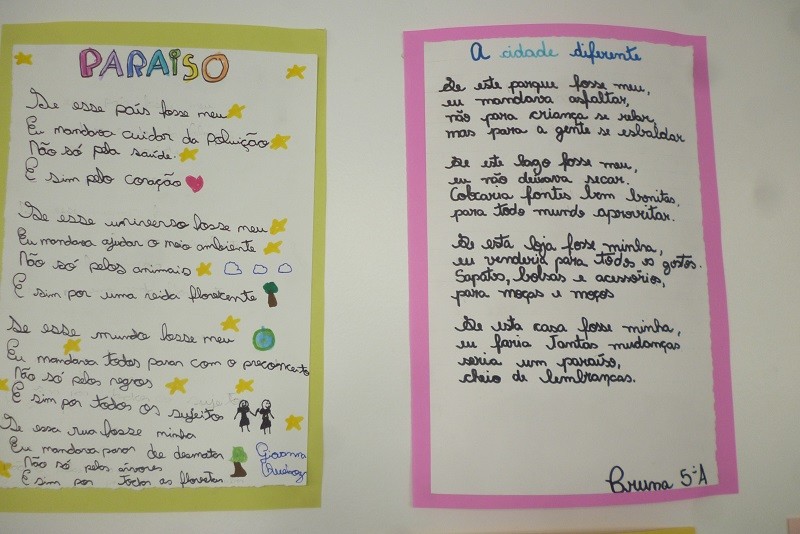 PARAISO
Se esse país fosse meu
Eu mandava cuidar da poluição
Não só pela saúde.
E sim pelo coração
Se esse universo fosse meu
Eu mandava ajudar o meio ambiente
Não só pelos animais
E sim por uma vida florescente
Se esse mundo fosse meu
Eu mandava todos parar com o preconceito
Não só pelos negros
E sim por todos os sujeitos
Se essa rua fosse minha
Eu mandava parar de desmatar
Não só pelos árvores
E sim por todos as florestas
Giovanna
A cidade diferente
Se este parque fosse meu,
eu mandava asfaltar,
não para criança se relar,
mas para a gente se esbaldar
Se este lago fosse meu,
eu não deixava secar.
Colocaria fontes bem bonitas,
para todo mundo aproveitar.
Se esta loja fosse minha,
eu venderia para todos os gostos.
Sapatos, bolsas e acessórios,
para moças e moços
Se esta casa fosse minha,
eu faria tantas mudanças
seria um paraíso,
cheio de lembranças.
Bruna 5ªA